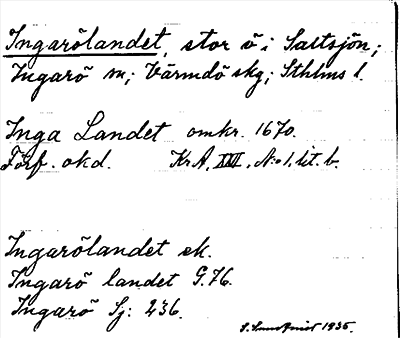 Ingarölandet, stor ö i Saltsjön;
Ingarö sn; Värmdö skg; Sthlms l.
Inga Landet omkr. 1670.
Förf. okd. Kr A, XXI, N:o 1, lit. b.
Ingarölandet ek.
Ingarö landet G.76.
Ingarö Sj: 236.
1935.